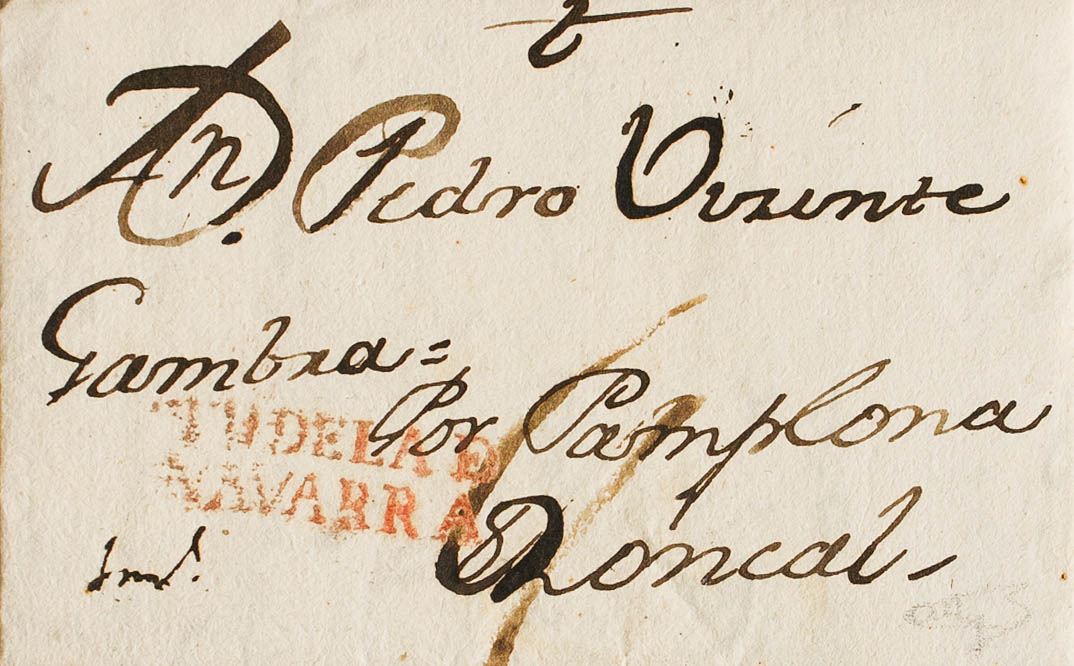 An D. Pedro Vizente
Gambra =
Por Pamplona
TUDELA D
NAVARRA
Roncal